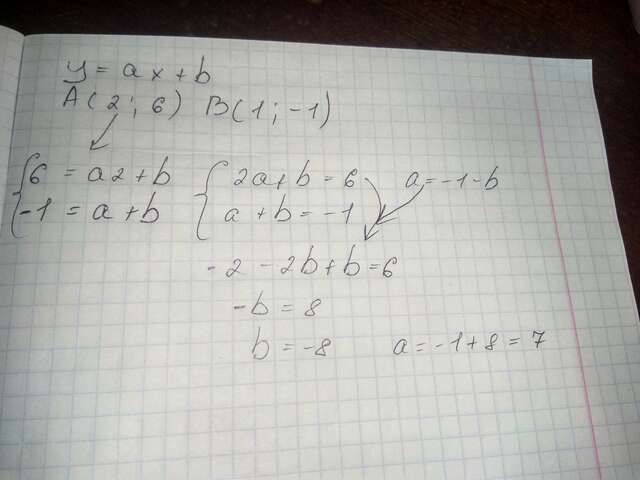 y = ax + b
A(2; 6) B(1; -1)
6 = a2 + b 2a + b = 6 a = -1 - b
-1 = a + b a + b = -1
-2 - 2b + b = 6
-b = 8
b = -8 a = -1 + 8 = 7